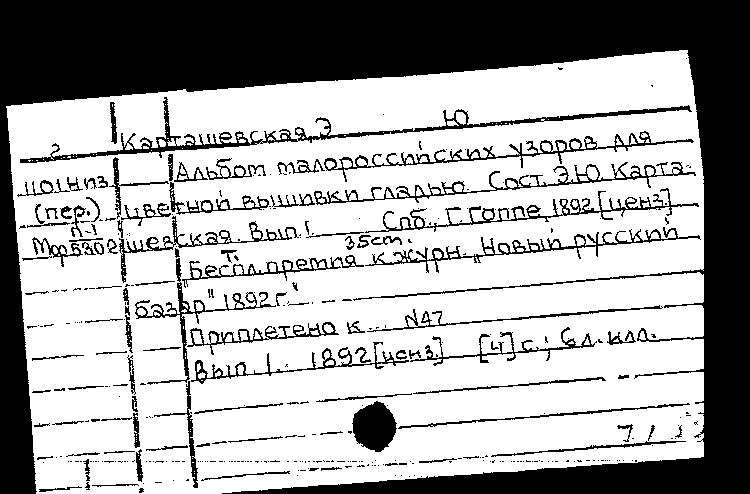 2 Карташевская, Э Ю
Альбом малороссийских узоров для
1101Н пз
цветной вышивки гладью. Сост. Э.Ю. Карта-
(пер.)
шевская. Вып. 1. Спб., Г. Гоппе, 1892 [ценз]
п-1
35cm.
"Беспл. премия к журн. „Новый русский
базар" 1892 г."
Приплетено к... N47
Вып. 1. 1892 [ценз.] [4] с.; 6 л. илл.